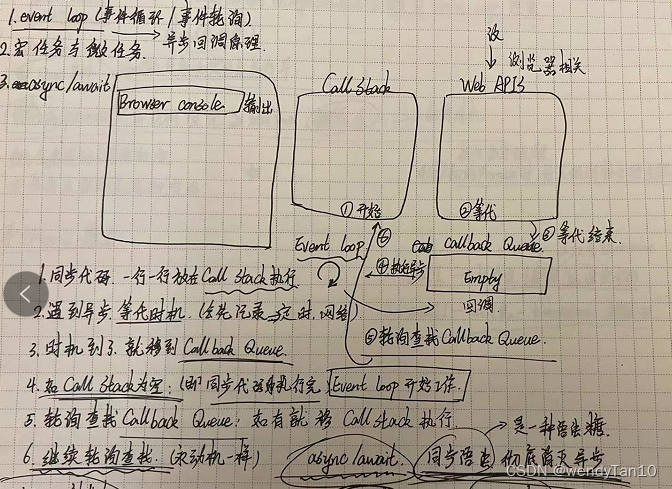 1. event loop (事件循环/事件轮询)
→ 异步回调原理.
2. 宏任务与微任务.
3. async/await
Browser console 输出
Call Stack
浏览器相关
Web APIs
①开始
②等待
③等待结束.
Event loop
Callback Queue.
④执行异步
Empty
回调.
⑤轮询查找 Callback Queue.
⑥
1. 同步代码. 一行一行放在Call Stack执行
2. 遇到异步 等待时机. (会先记录 定时.网络)
3. 时机到了. 就移到 Callback Queue.
4. 如Call Stack为空. (即同步代码执行完) Event loop 开始工作.
5. 轮询查找 Callback Queue; 如有就移 Call Stack 执行.
6. 继续轮询查找. (永动机一样)
async/await.
同步语法 彻底消灭异步
→ 是一种语法糖.
CSDN @wendyTan10